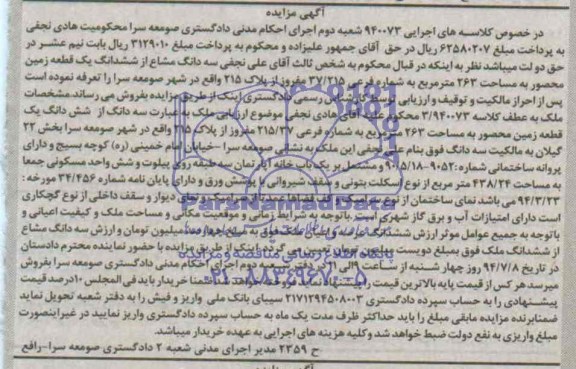 آگهی مزایده
در خصوص کلاسه های اجرایی ۹۴۰۰۷۳ شعبه دوم اجرای احکام مدنی دادگستری صومعه سرا محکومیت هادی نجفی
به پرداخت مبلغ ۶۲۵۸۰۲۰۷ ریال در حق آقای جمهور علیزاده و محکوم به پرداخت مبلغ ۳۱۲۹۰۱۰ ریال بابت نیم عشر در
حق دولت میباشد نظر به اینکه در قبال محکوم به شخص ثالث آقای علی نجفی سه دانگ مشاع از ششدانگ یک قطعه زمین
محصور به مساحت ۲۶۳ مترمربع به شماره فرعی ۳۷/۲۱۵ مفروز از پلاک ۲۱۵ واقع در شهر صومعه سرا را تعرفه نموده است
پس از احراز مالکیت و توقیف و ارزیابی توسط کارشناس رسمی دادگستری اینک از طریق مزایده بفروش می رساند مشخصات
ملک به عطف کلاسه ۳/۹۴۰۰۷۳ محکوم علیه آقای هادی نجفی موضوع ارزیابی ملک به عبارت سه دانگ از شش دانگ یک
قطعه زمین محصور به مساحت ۲۶۳ مترمربع به شماره فرعی ۲۱۵/۳۷ مفروز از پلاک ۲۱۵ واقع در شهر صومعه سرا بخش ۲۲
گیلان به مالکیت سه دانگ فوق بنام علی نجفی این ملک به نشانی صومعه سرا -خیابان امام خمینی (ره) کوچه بسیج و دارای
پروانه ساختمانی شماره :۹۰۵۲-۹۰/۵/۱۸ و مشتمل بر یک باب خانه آپارتمان سه طبقه روی پیلوت و شش واحد مسکونی جمعا
به مساحت ۴۳۸/۲۴ متر مربع از نوع اسکلت بتونی و سقف شیروانی با پوشش ورق و دارای پایان نامه شماره ۳۴/۴۵۶ مورخه :
۹۴/۳/۲۳ می باشد نمای ساختمان از نوع دیوار و سقف داخلی از نوع گچکاری
است دارای امتیازات آب و برق گاز شهری است .باتوجه به شرایط زمانی و موقعیت مکانی و مساحت ملک و کیفیت اعیانی و
باتوجه به جمیع عوامل موثر ارزش ششدانگ عرصه و اعیان ملک فوق به مبلغ چهارصد میلیون تومان و ارزش سه دانگ مشاع
از ششدانگ ملک فوق بمبلغ دویست میلیون تومان تعیین می گردد اینک از طریق مزایده با حضور نماینده محترم دادستان
در تاریخ ۹۴/۷/۸ روز چهار شنبه از ساعت ۹ الی ۱۱ در دفتر شعبه دوم اجرای احکام مدنی دادگستری صومعه سرا بفروش
میرسد هر کس از قیمت پایه بالاترین قیمت را ضمنا خریدار باید فی المجلس ۱۰درصد قیمت
پیشنهادی را به حساب سپرده دادگستری ۲۱۷۱۲۹۴۵۰۸۰۰۳ سیبای بانک ملی واریز و فیش را به دفتر شعبه تحویل نماید
ضمنابرنده مزایده مابقی مبلغ را باید حداکثر ظرف مدت یک ماه به حساب سپرده دادگستری واریز نمایید در غیراینصورت
مبلغ واریزی به نفع دولت ضبط خواهد شد و کلیه هزینه های اجرایی به عهده خریدار میباشد.
ح ۲۳۵۹ مدیر اجرای مدنی شعبه ۲ دادگستری صومعه سرا-رافع
ParsNamadData
پایگاه اطلاع رسانی مناقصه و مزایده
۰۲۱-۸۸۳۴۹۶۷۰-۵